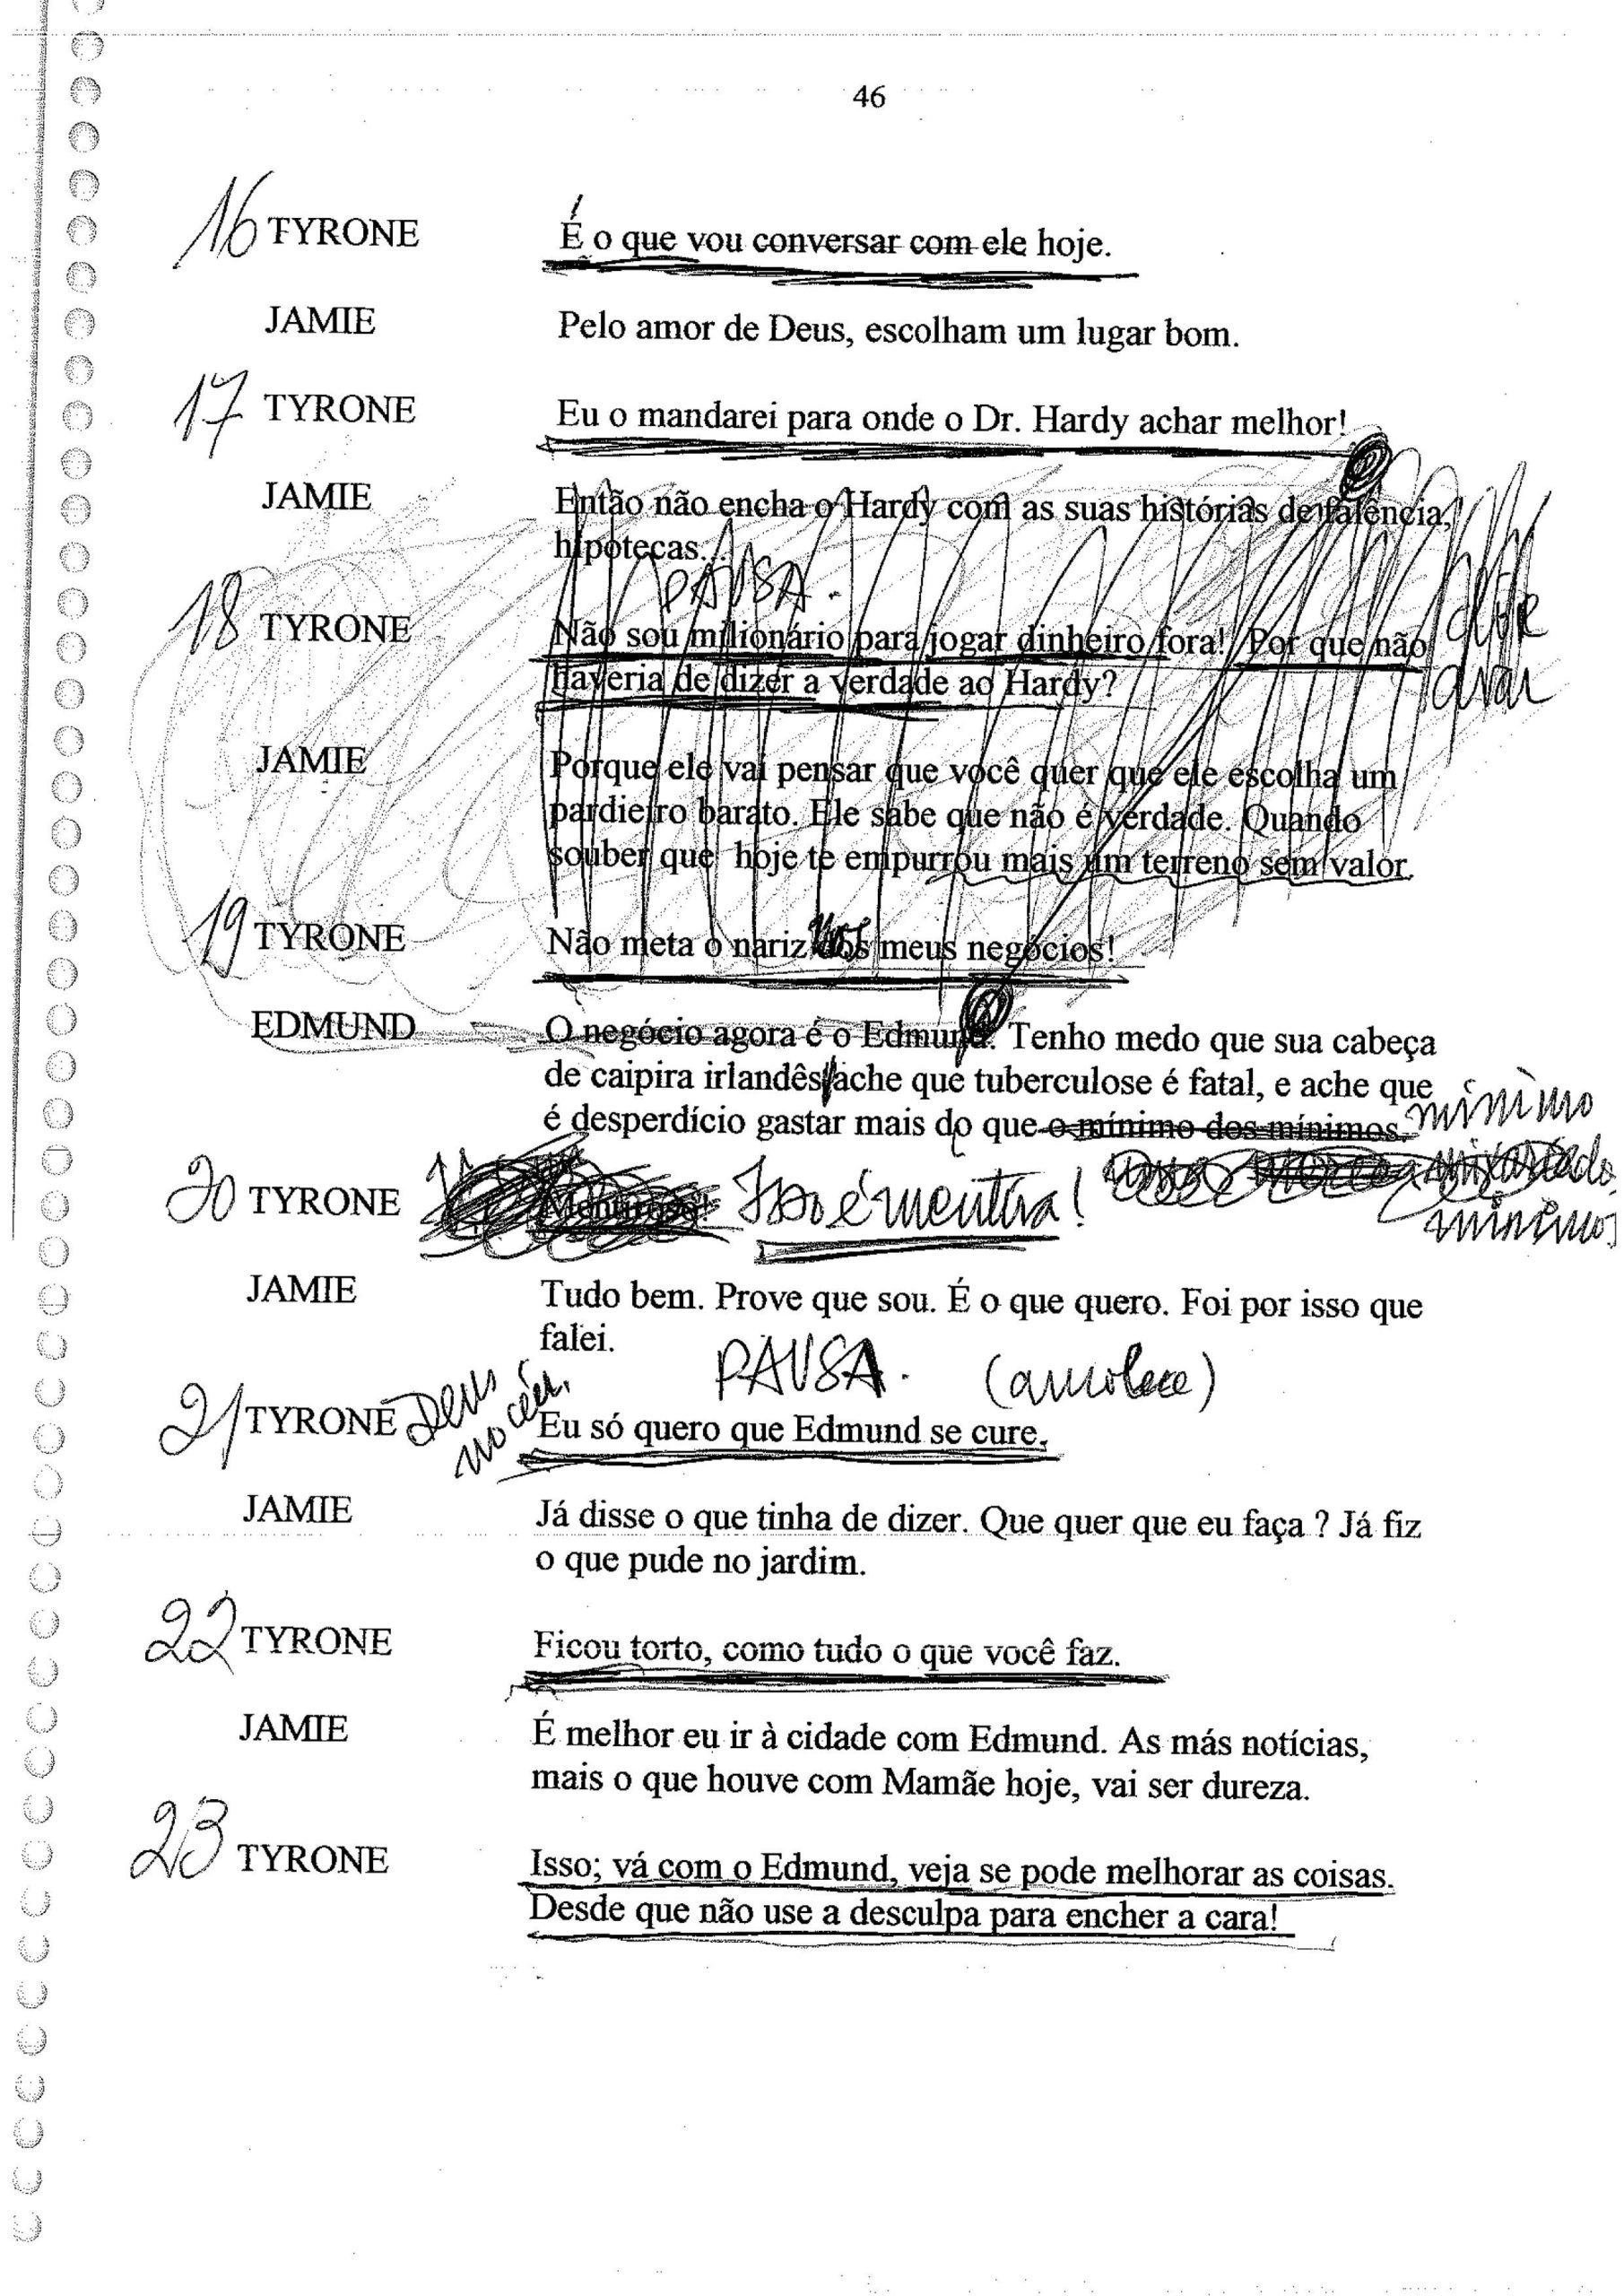 46
16 TYRONE É o que vou conversar com ele hoje.
JAMIE Pelo amor de Deus, escolham um lugar bom.
17 TYRONE Eu o mandarei para onde o Dr. Hardy achar melhor!
JAMIE Então não encha o Hardy com as suas histórias de falência,
hipotecas...
PAUSA.
18 TYRONE Não sou milionário para jogar dinheiro fora! Por que não
haveria de dizer a verdade ao Hardy?
JAMIE Porque ele vai pensar que você quer que ele escolha um
pardieiro barato. Ele sabe que não é verdade. Quando
souber que hoje te empurrou mais um terreno sem valor.
19 TYRONE Não meta o nariz nos meus negócios!
EDMUND O negócio agora é o Edmund. Tenho medo que sua cabeça
de caipira irlandês ache que tuberculose é fatal, e ache que
é desperdício gastar mais do que o mínimo dos mínimos.
mínimo
20 TYRONE Mentiroso! Isso é mentira!
mínimo
JAMIE Tudo bem. Prove que sou. É o que quero. Foi por isso que
falei.
PAUSA. (amolece)
21 TYRONE Deus no céu, Eu só quero que Edmund se cure.
JAMIE Já disse o que tinha de dizer. Que quer que eu faça ? Já fiz
o que pude no jardim.
22 TYRONE Ficou torto, como tudo o que você faz.
JAMIE É melhor eu ir à cidade com Edmund. As más notícias,
mais o que houve com Mamãe hoje, vai ser dureza.
23 TYRONE Isso; vá com o Edmund, veja se pode melhorar as coisas.
Desde que não use a desculpa para encher a cara!